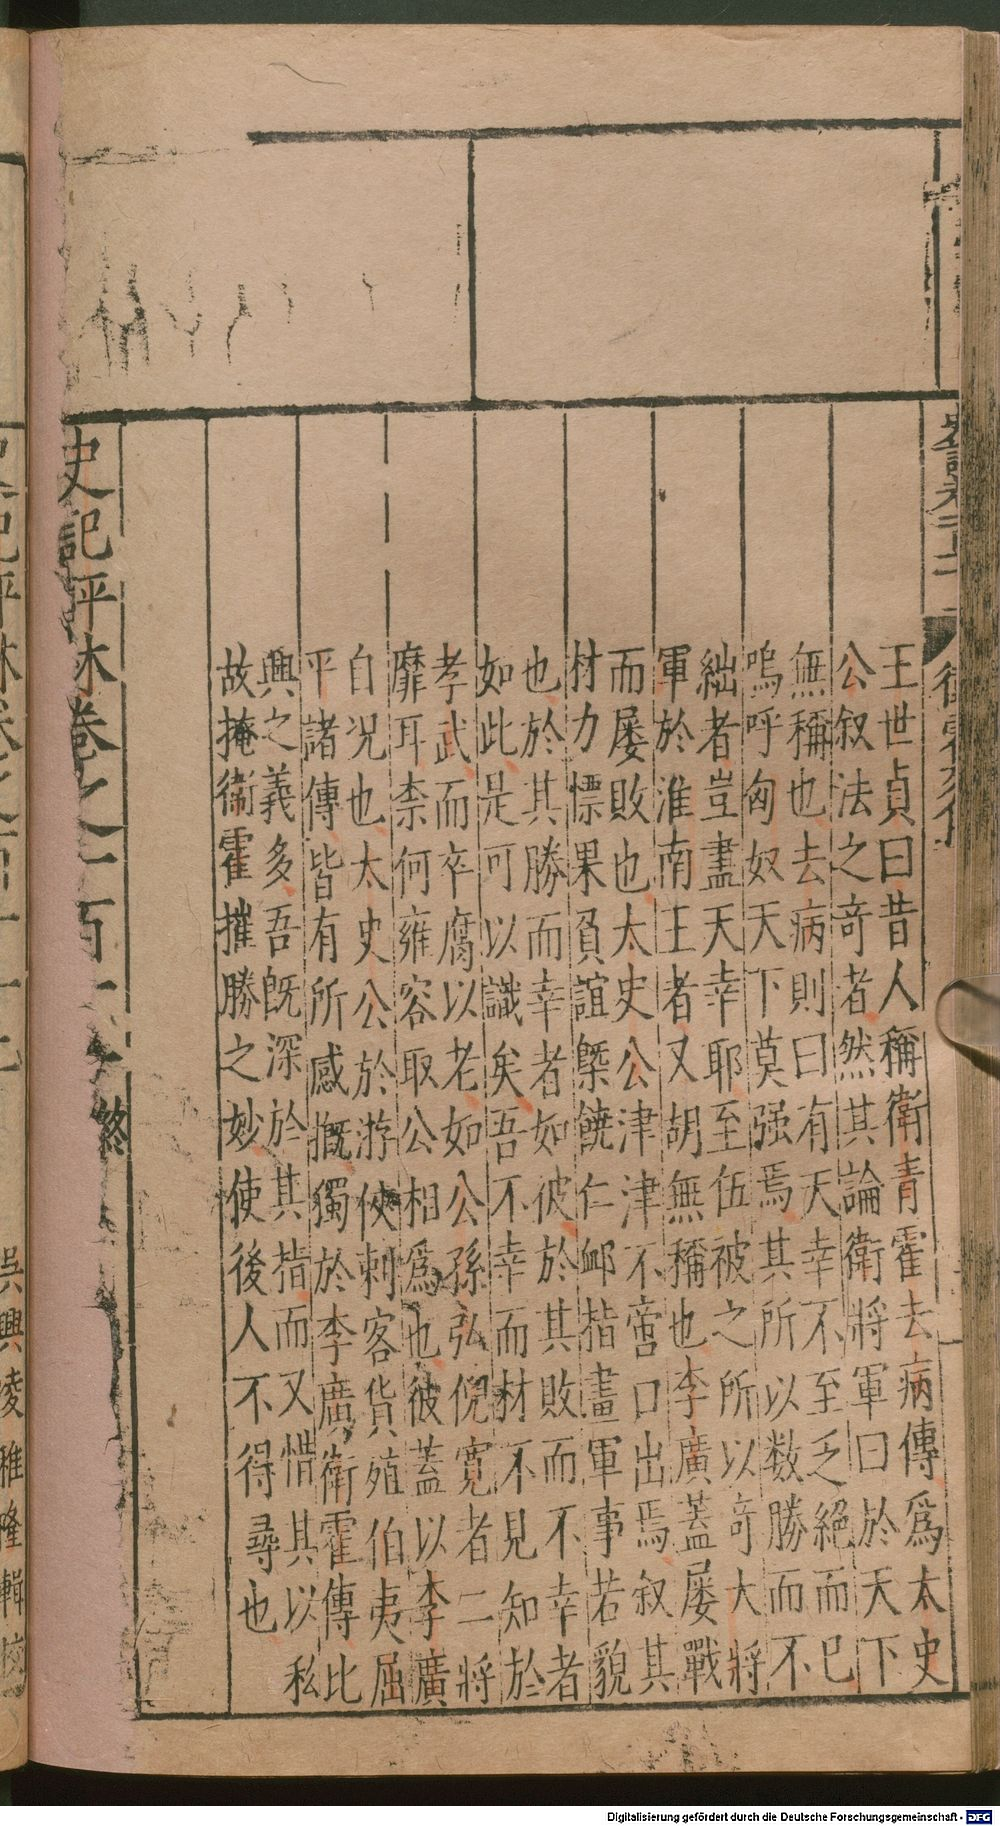 王世貞曰昔人稱衛青霍去病傳爲太史
公叙法之奇者然其論衛將軍曰於天下
無稱也去病則曰有天幸不至乏絕而已
嗚呼匈奴天下莫强焉其所以数勝而不
絀者豈盡天幸耶至伍被之所以竒大將
軍於淮南王者又胡無稱也李廣蓋屡戰
而屡敗也太史公津津不啻口出焉叙其
材力慓果負誼槩饒仁䘏指畫軍事若貌
也於其勝而幸者如彼於其敗而不幸者
如此是可以識矣吾不幸而材不見知於
孝武而卒腐以老如公孫弘倪寛者二將
靡耳柰何雍容取公相爲也彼蓋以李廣
自况也太史公於游俠刺客貨殖伯夷屈
平諸傳皆有所感慨獨於李廣衛霍傳比
興之義多吾旣深於其指而又惜其以私
故掩衛霍摧勝之妙使後人不得尋也
史記評林卷之一百十一終
吳興凌稚隆輯校
Digitalisierung gefördert durch die Deutsche Forschungsgemeinschaft - DFG